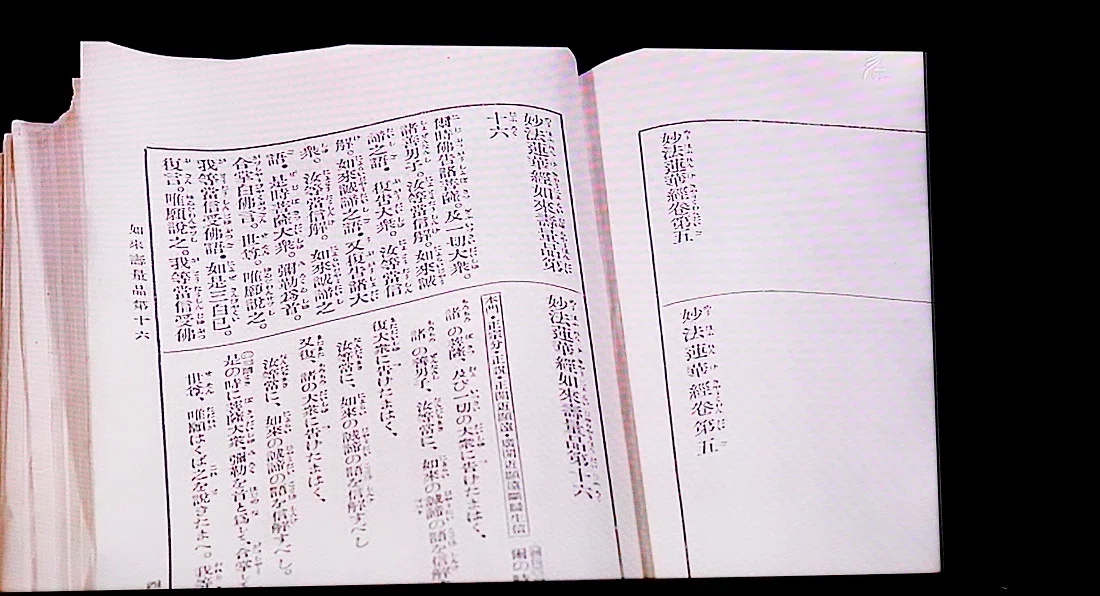 妙法蓮華經卷第五
妙法蓮華經卷第五
妙法蓮華經如來壽量品第
十六
爾時佛告諸菩薩。及一切大衆。
諸善男子。汝等當信解。如來誠
諦之語。復告大衆。汝等當信
解。如來誠諦之語。又復告諸大
衆。汝等當信解。如來誠諦之
語。是時菩薩大衆。彌勒爲首。
合掌白佛言。世尊。唯願說之。
我等當信受佛語。如是三白已。
復言。唯願說之。我等當信受佛
妙法蓮華經如來壽量品第十六
諸の菩薩、及び一切の大衆に告げたまはく、
諸の善男子、汝等當に、如來の誠諦の語を信解
復大衆に告げたまはく、
汝等當に、如來の誠諦の語を信解すべし
又復、諸の大衆に告げたまはく、
汝等當に、如來の誠諦の語を信解すべし。
是の時に菩薩大衆、彌勒を首と爲して、合掌し
世尊、唯願はくは之を說きたまへ。我等
如來壽量品第十六